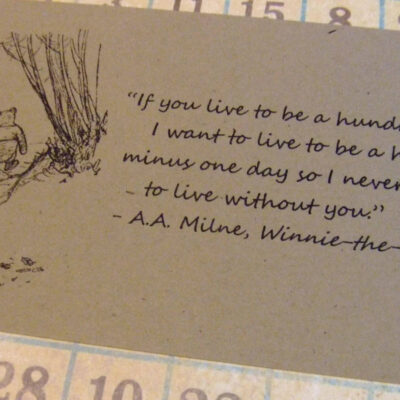 15 8
“If you live to be a hund
I want to live to be a h
minus one day so I never
to live without you.”
- A.A. Milne, Winnie-the-
28 10